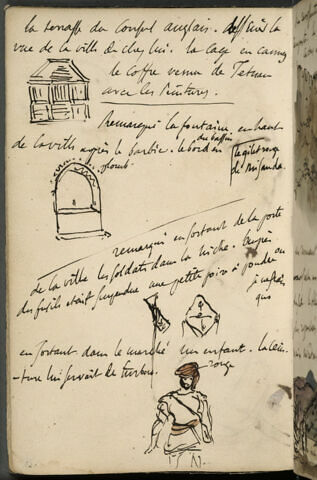 la terrasse du consul anglais. dessiné la
vue de la ville de chez lui. la cage en cannes
le coffre venu de Tetuan
avec les Peintures.
Remarqué la fontaine en haut
de la ville auprès le barbier. le bord du bassin
plomb
le gilet rouge
de
remarqué en sortant de la porte
de la ville les soldats dans la niche. auprès
des fusils était suspendue une petite poire à poudre ou
en sortant dans le marché un enfant. la cein-
-ture lui servait de turban.
rouge